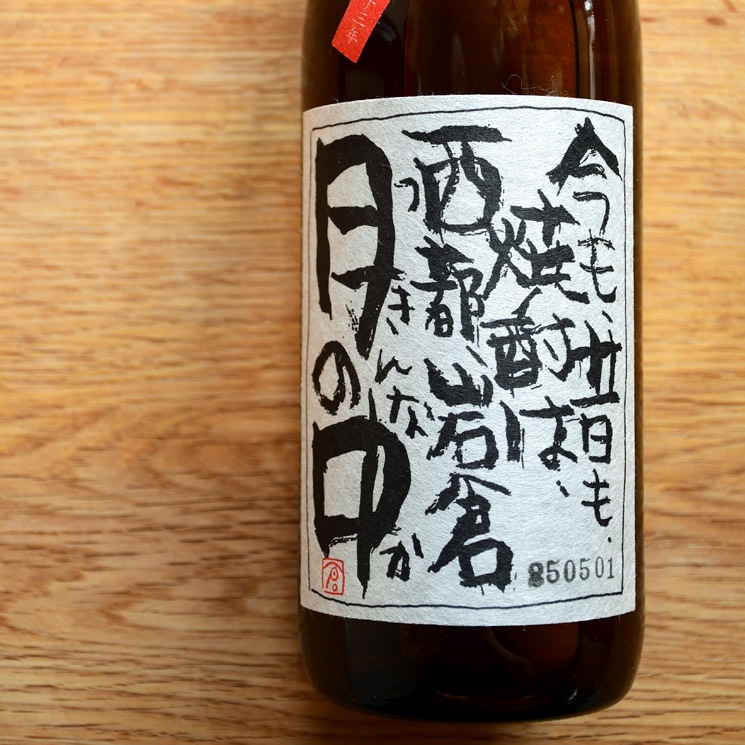 今も、昔も、
焼酎は、
西都、岩倉
つきんなか
月の中
250501